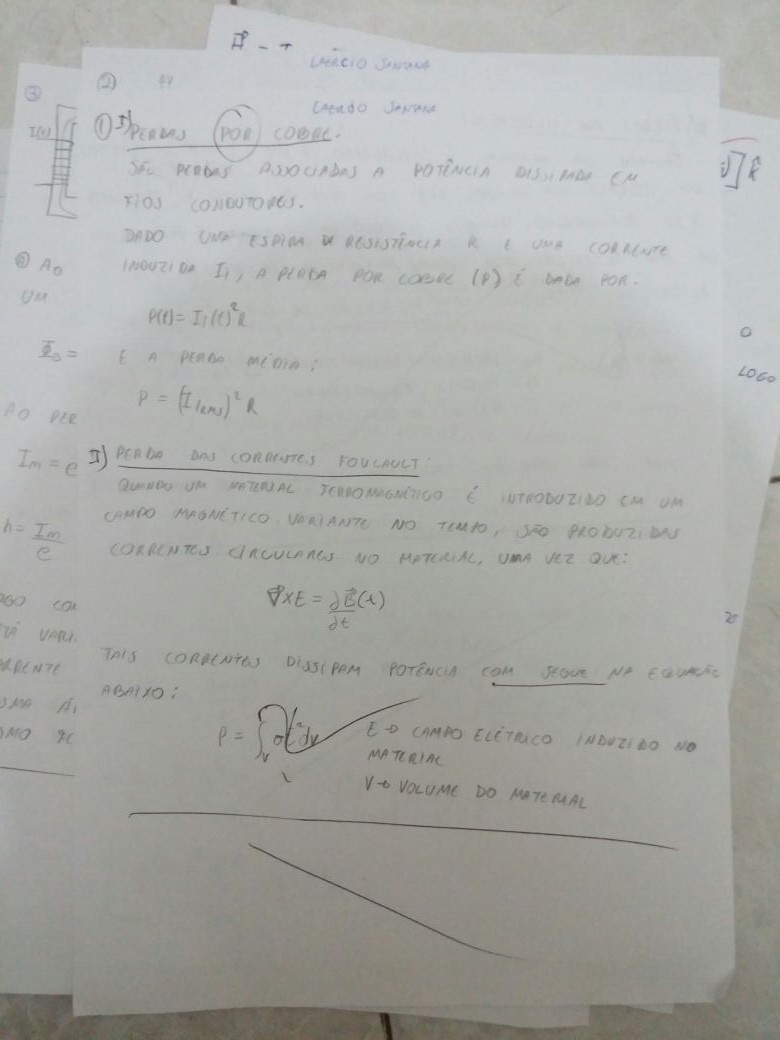 LAÉRCIO SANTANA
② 44
LAÉRCIO SANTANA
① I) PERDAS POR COBRE.
SÃO PERDAS ASSOCIADAS A POTÊNCIA DISSIPADA EM
FIOS CONDUTORES.
DADO UMA ESPIRA DE RESISTÊNCIA R E UMA CORRENTE
INDUZIDA I₁, A PERDA POR COBRE (P) É DADA POR.
P(t) = I₁(t)² R
E A PERDA MÉDIA:
P = (I₁RMS)² R
II) PERDA DAS CORRENTES FOUCAULT:
QUANDO UM MATERIAL FERROMAGNÉTICO É INTRODUZIDO EM UM
CAMPO MAGNÉTICO VARIANTE NO TEMPO, SÃO PRODUZIDAS
CORRENTES CIRCULARES NO MATERIAL, UMA VEZ QUE:
∇⃗ X E = ∂B⃗(t)
∂t
TAIS CORRENTES DISSIPAM POTÊNCIA COM SEGUE NA EQUAÇÃO
ABAIXO:
P = ∫ᵥ σE² dv
E → CAMPO ELÉTRICO INDUZIDO NO
MATERIAL
V → VOLUME DO MATERIAL
③
I(t)
AO
UM
Φ₀ =
AO PER
Im = e
h = Im
e
OGO CO
VARI
RRENTE
SMO
]k̂
O
LOGO